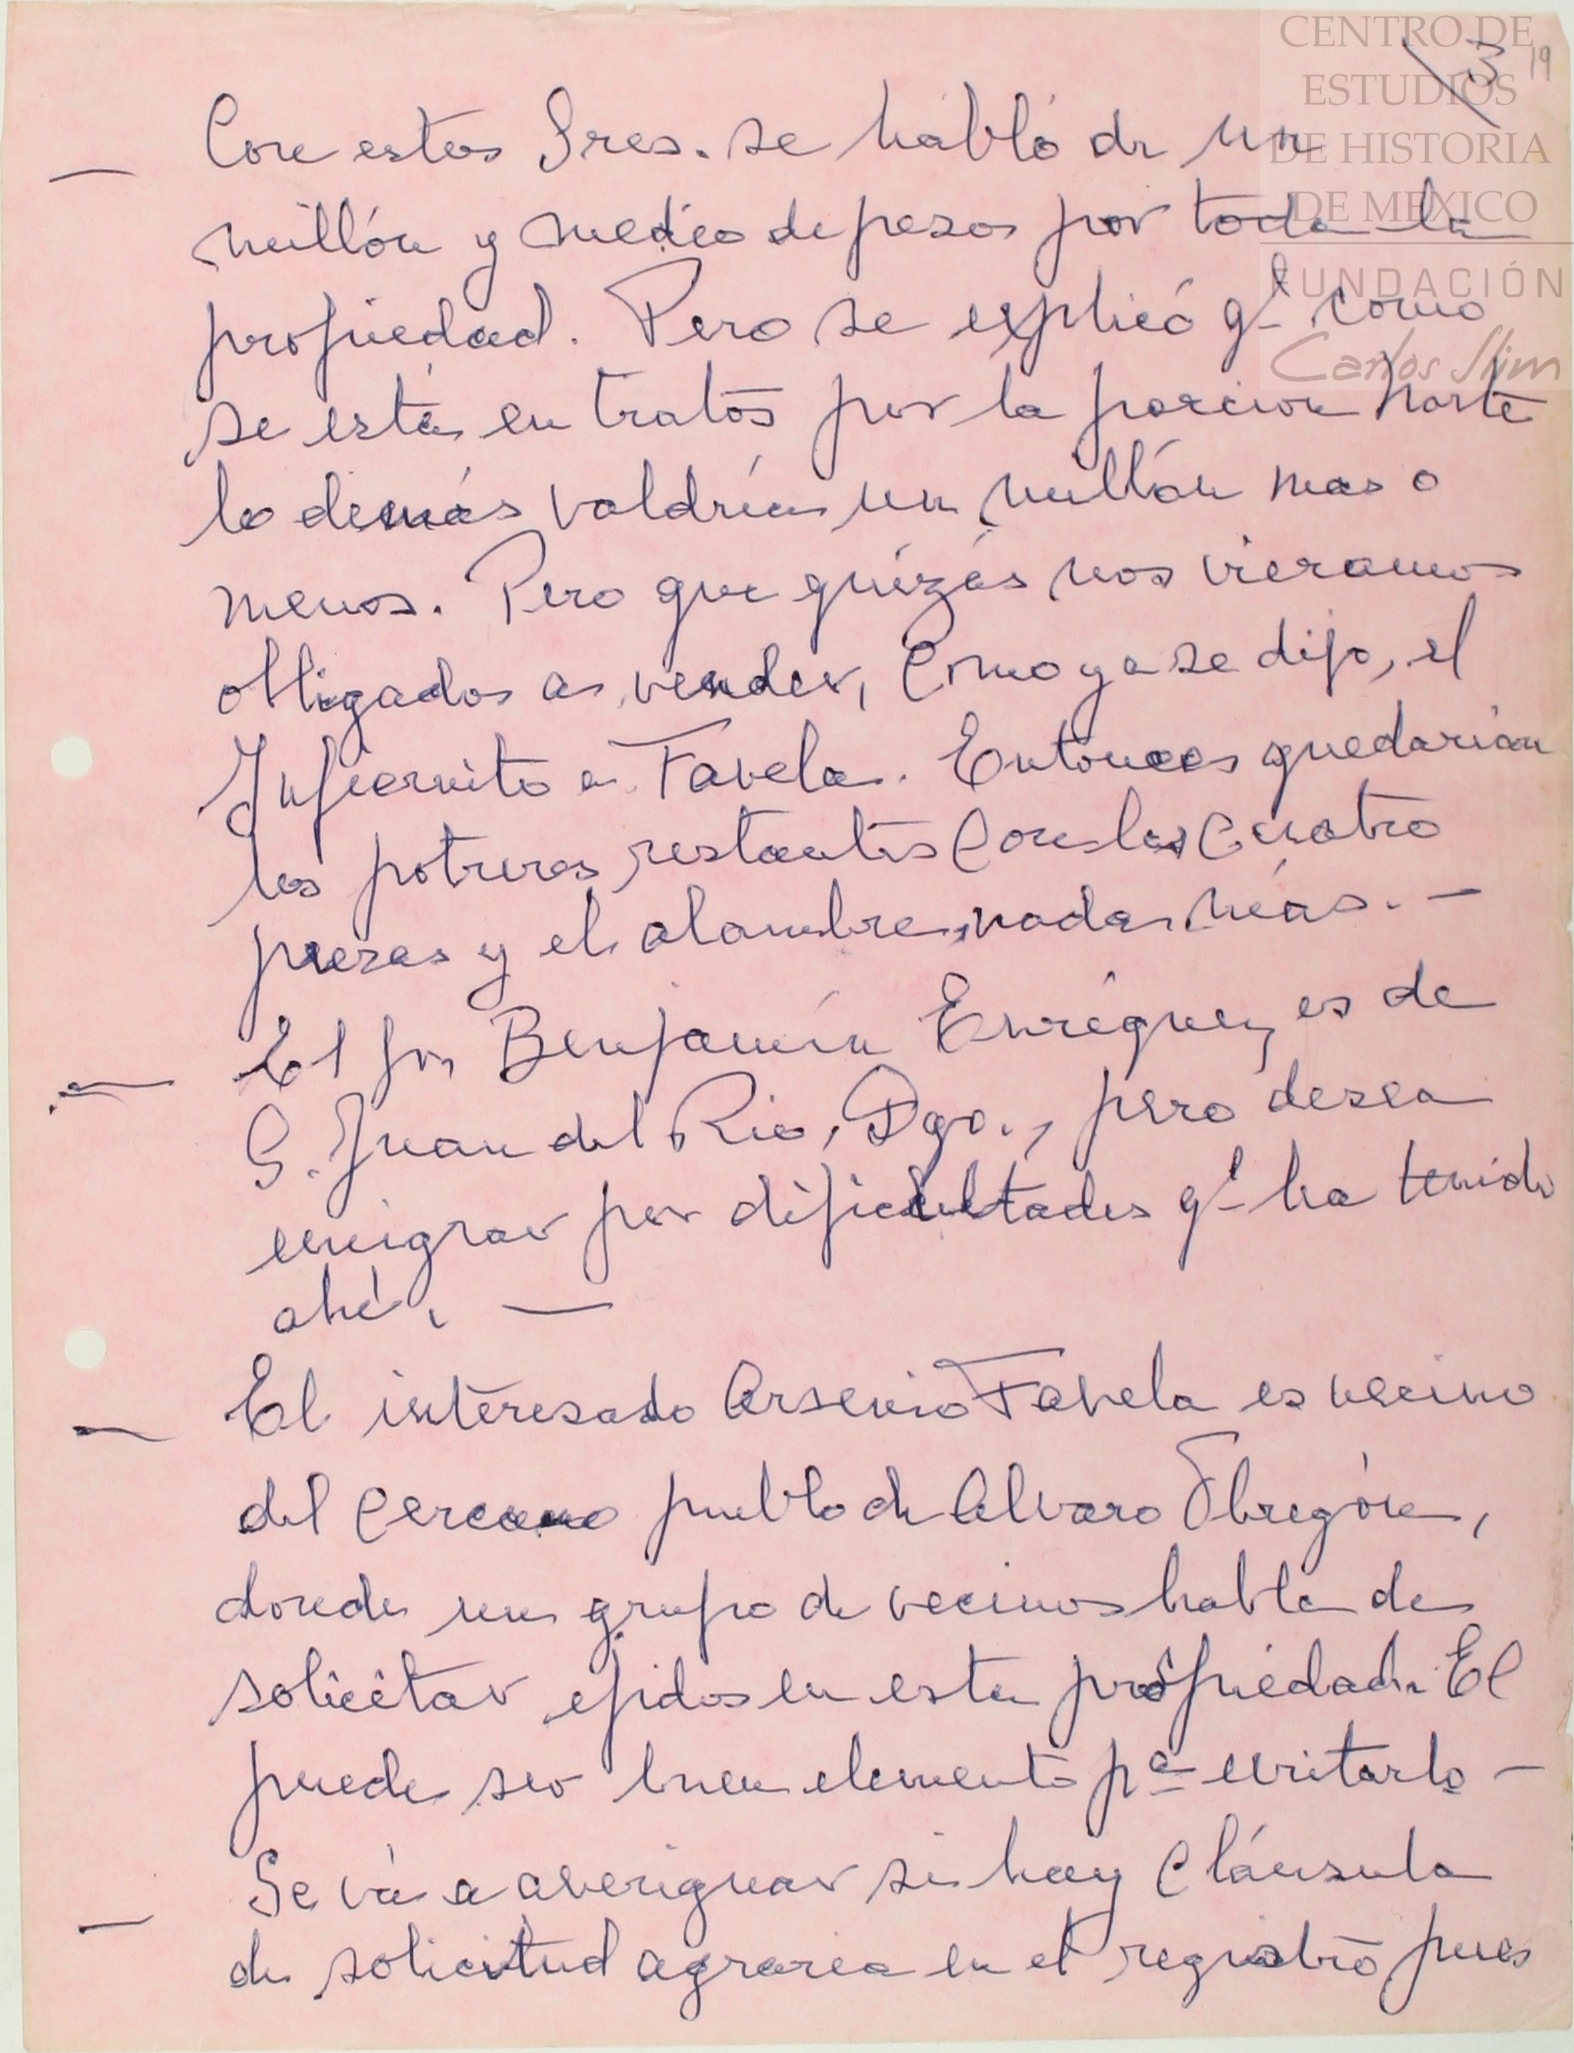 CENTRO DE
ESTUDIOS
DE HISTORIA
DE MEXICO
FUNDACIÓN
Carlos Slim
3 19
— Con estos Sres. se habló de un
millón y medio de pesos por toda la
propiedad. Pero se explicó q- como
se está en tratos por la porcion Norte
lo demás valdría un millón mas o
menos. Pero que quizás nos vieramos
obligados a vender, Como ya se dijo, el
Infiernito a Favela. Entonces quedarían
los potreros restantes Con las Cuatro
presas y el alambre, nada más. —
— El Sr. Benjamín Enríquez es de
S. Juan del Rio, Dgo., pero desea
emigrar por dificultades q- ha tenido
ahí. —
— El interesado Arsenio Favela es vecino
del Cercano pueblo de Alvaro Obregón,
donde un grupo de vecinos habla de
solicitar ejidos en esta propiedad. El
puede ser buen elemento pª evitarlo —
— Se vá a averiguar si hay Cláusula
de solicitud agraria en el registro pues